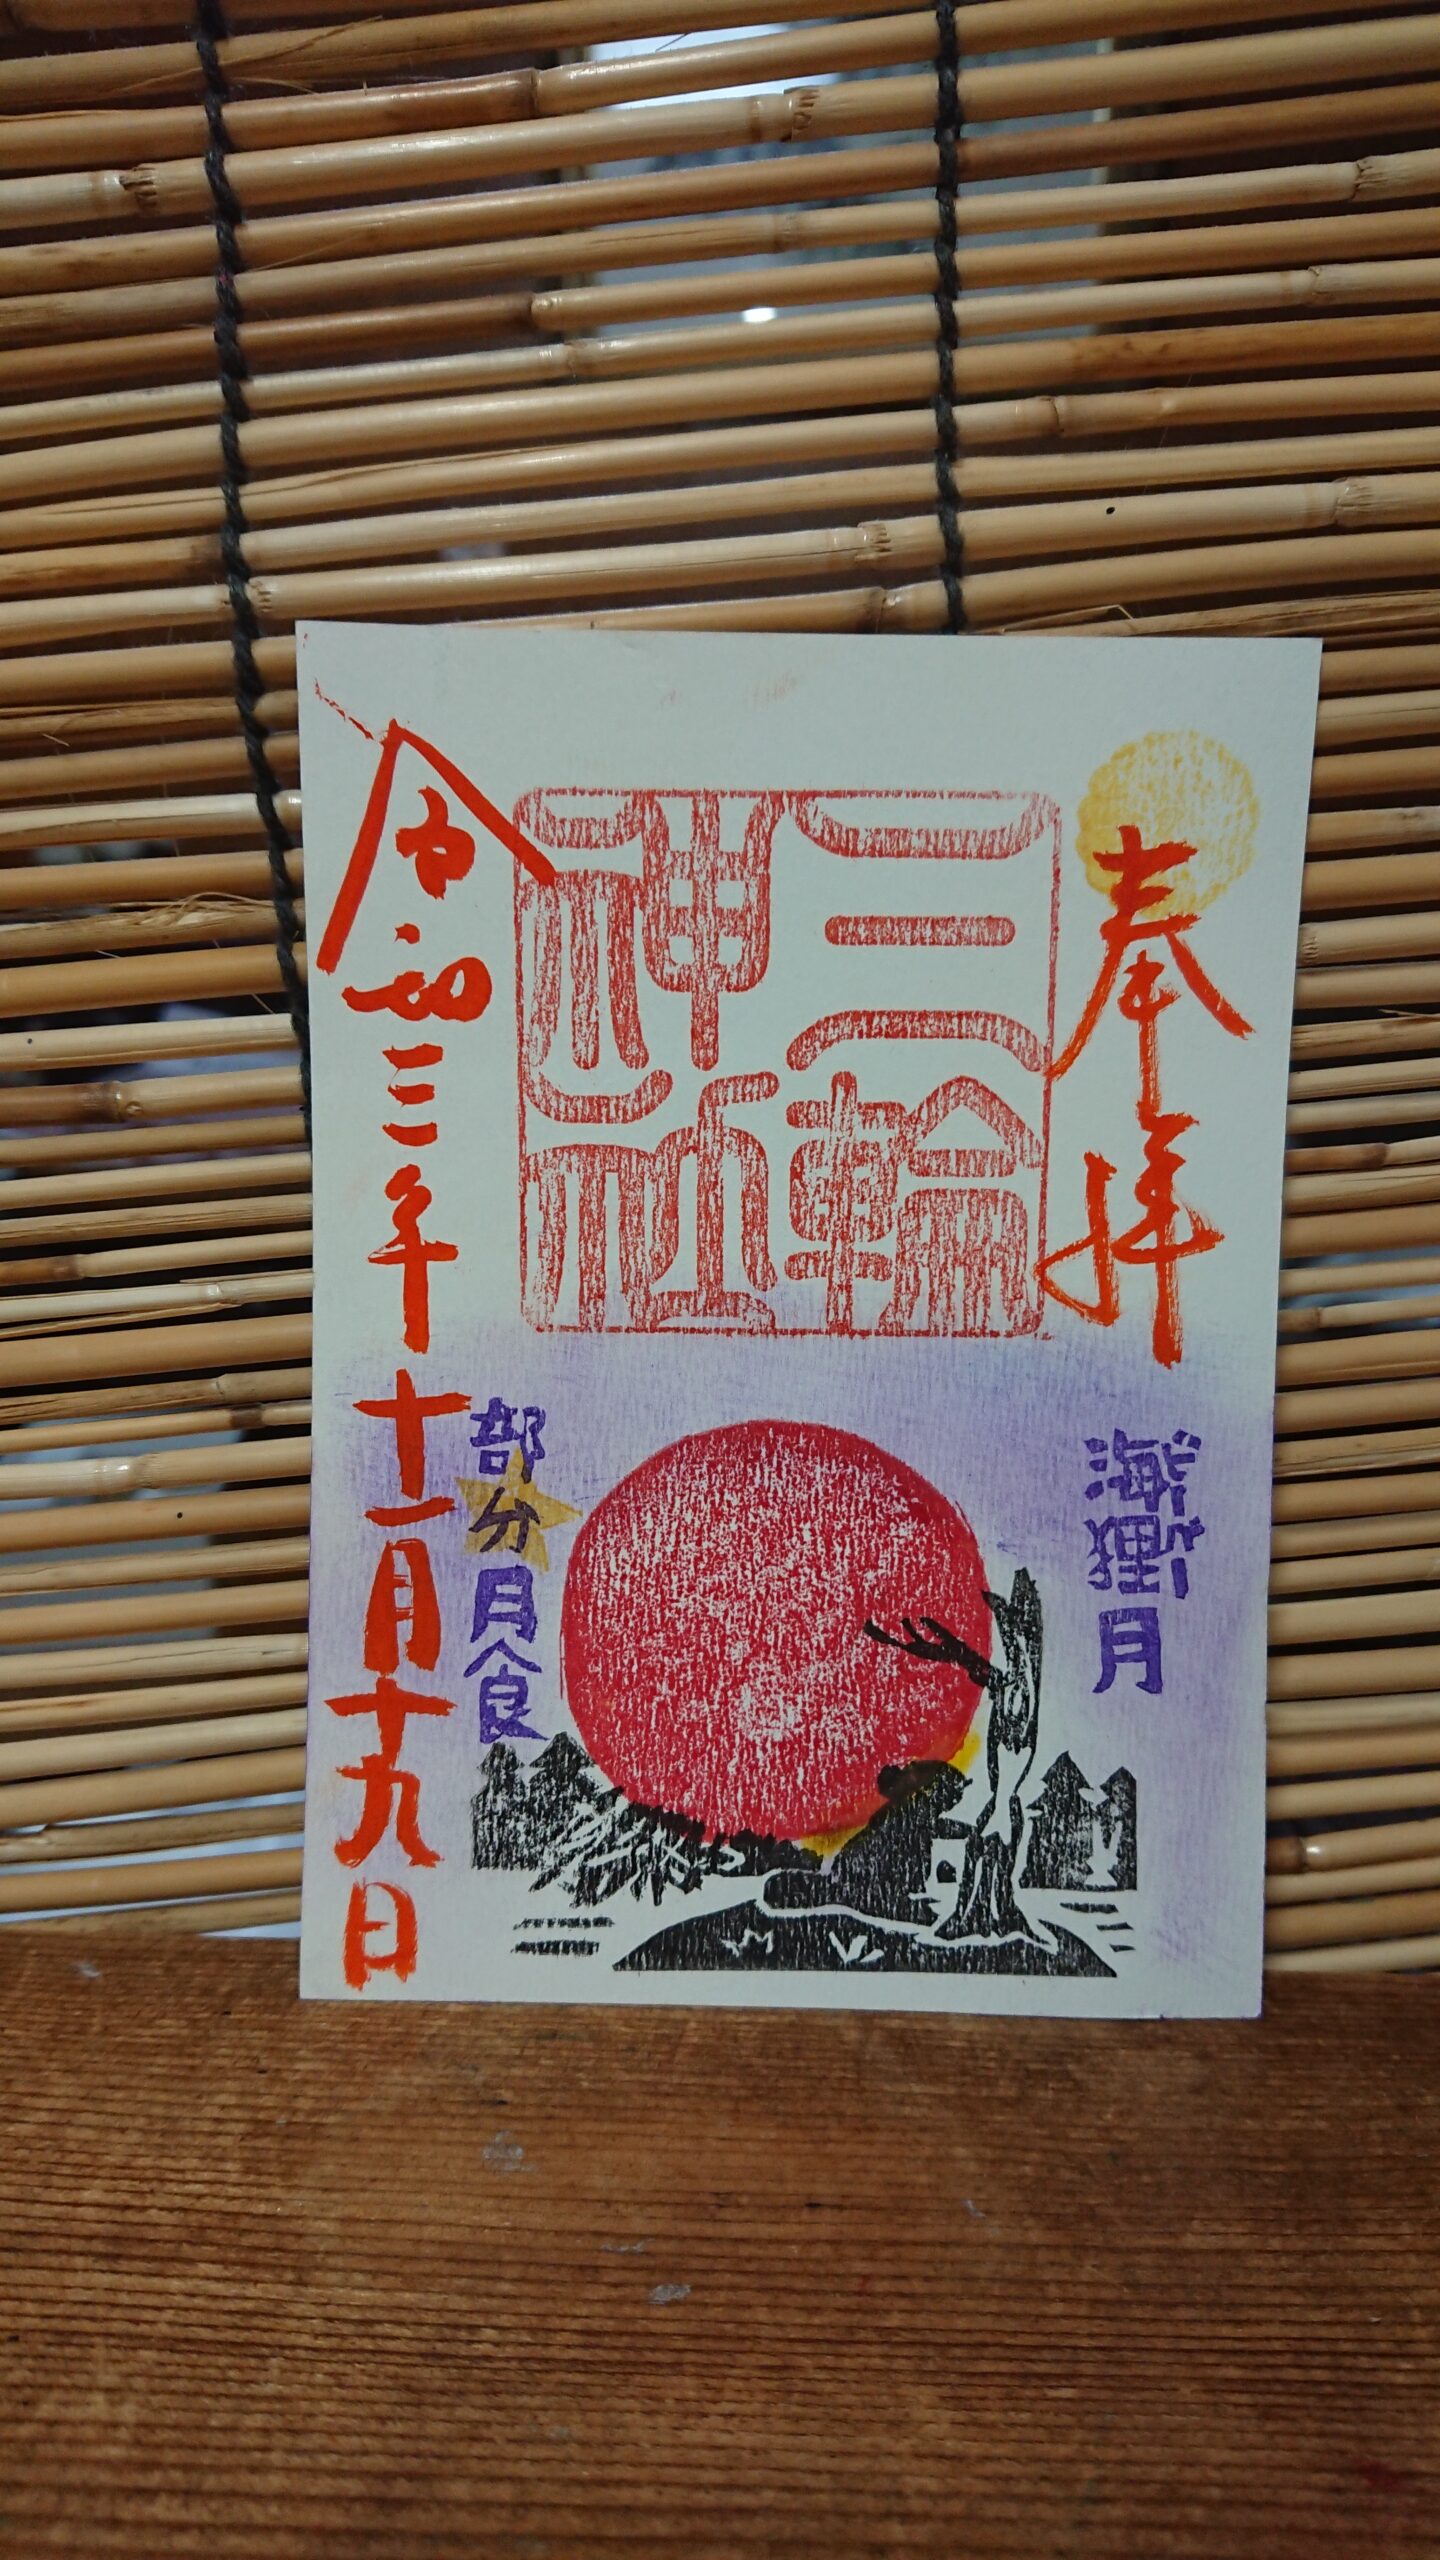 奉拝
三輪
神社
海狸月
ビーバー
部分月食
令和三年十一月十九日